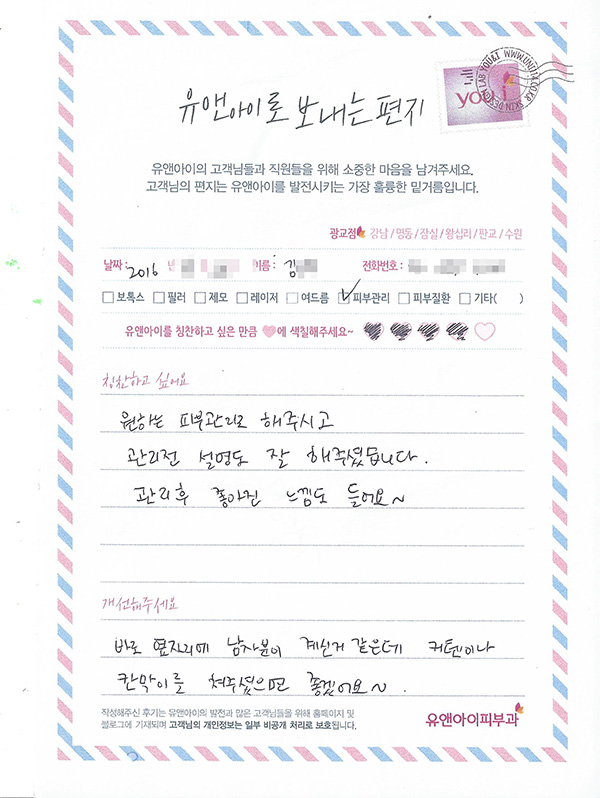 유앤아이로 보내는 편지
you i
LAB YOU&I WWW.UNI114.CO.KR SKIN DES
유앤아이의 고객님들과 직원들을 위해 소중한 마음을 남겨주세요.
고객님의 편지는 유앤아이를 발전시키는 가장 훌륭한 밑거름입니다.
광교점 강남 / 명동 / 잠실 / 왕십리 / 판교 / 수원
날짜 : 2016 년 이름 : 김 전화번호 :
보톡스 필러 제모 레이저 여드름 피부관리 피부질환 기타( )
유앤아이를 칭찬하고 싶은 만큼 에 색칠해주세요~
칭찬하고 싶어요
원하는 피부관리로 해주시고
관리전 설명도 잘 해주셨습니다.
관리후 좋아진 느낌도 들어요~
개선해주세요
바로 옆자리에 남자분이 계신거 같은데 커텐이나
칸막이를 쳐주셨으면 좋겠어요~.
작성해주신 후기는 유앤아이의 발전과 많은 고객님들을 위해 홈페이지 및
블로그에 기재되며 고객님의 개인정보는 일부 비공개 처리로 보호됩니다.
유앤아이피부과